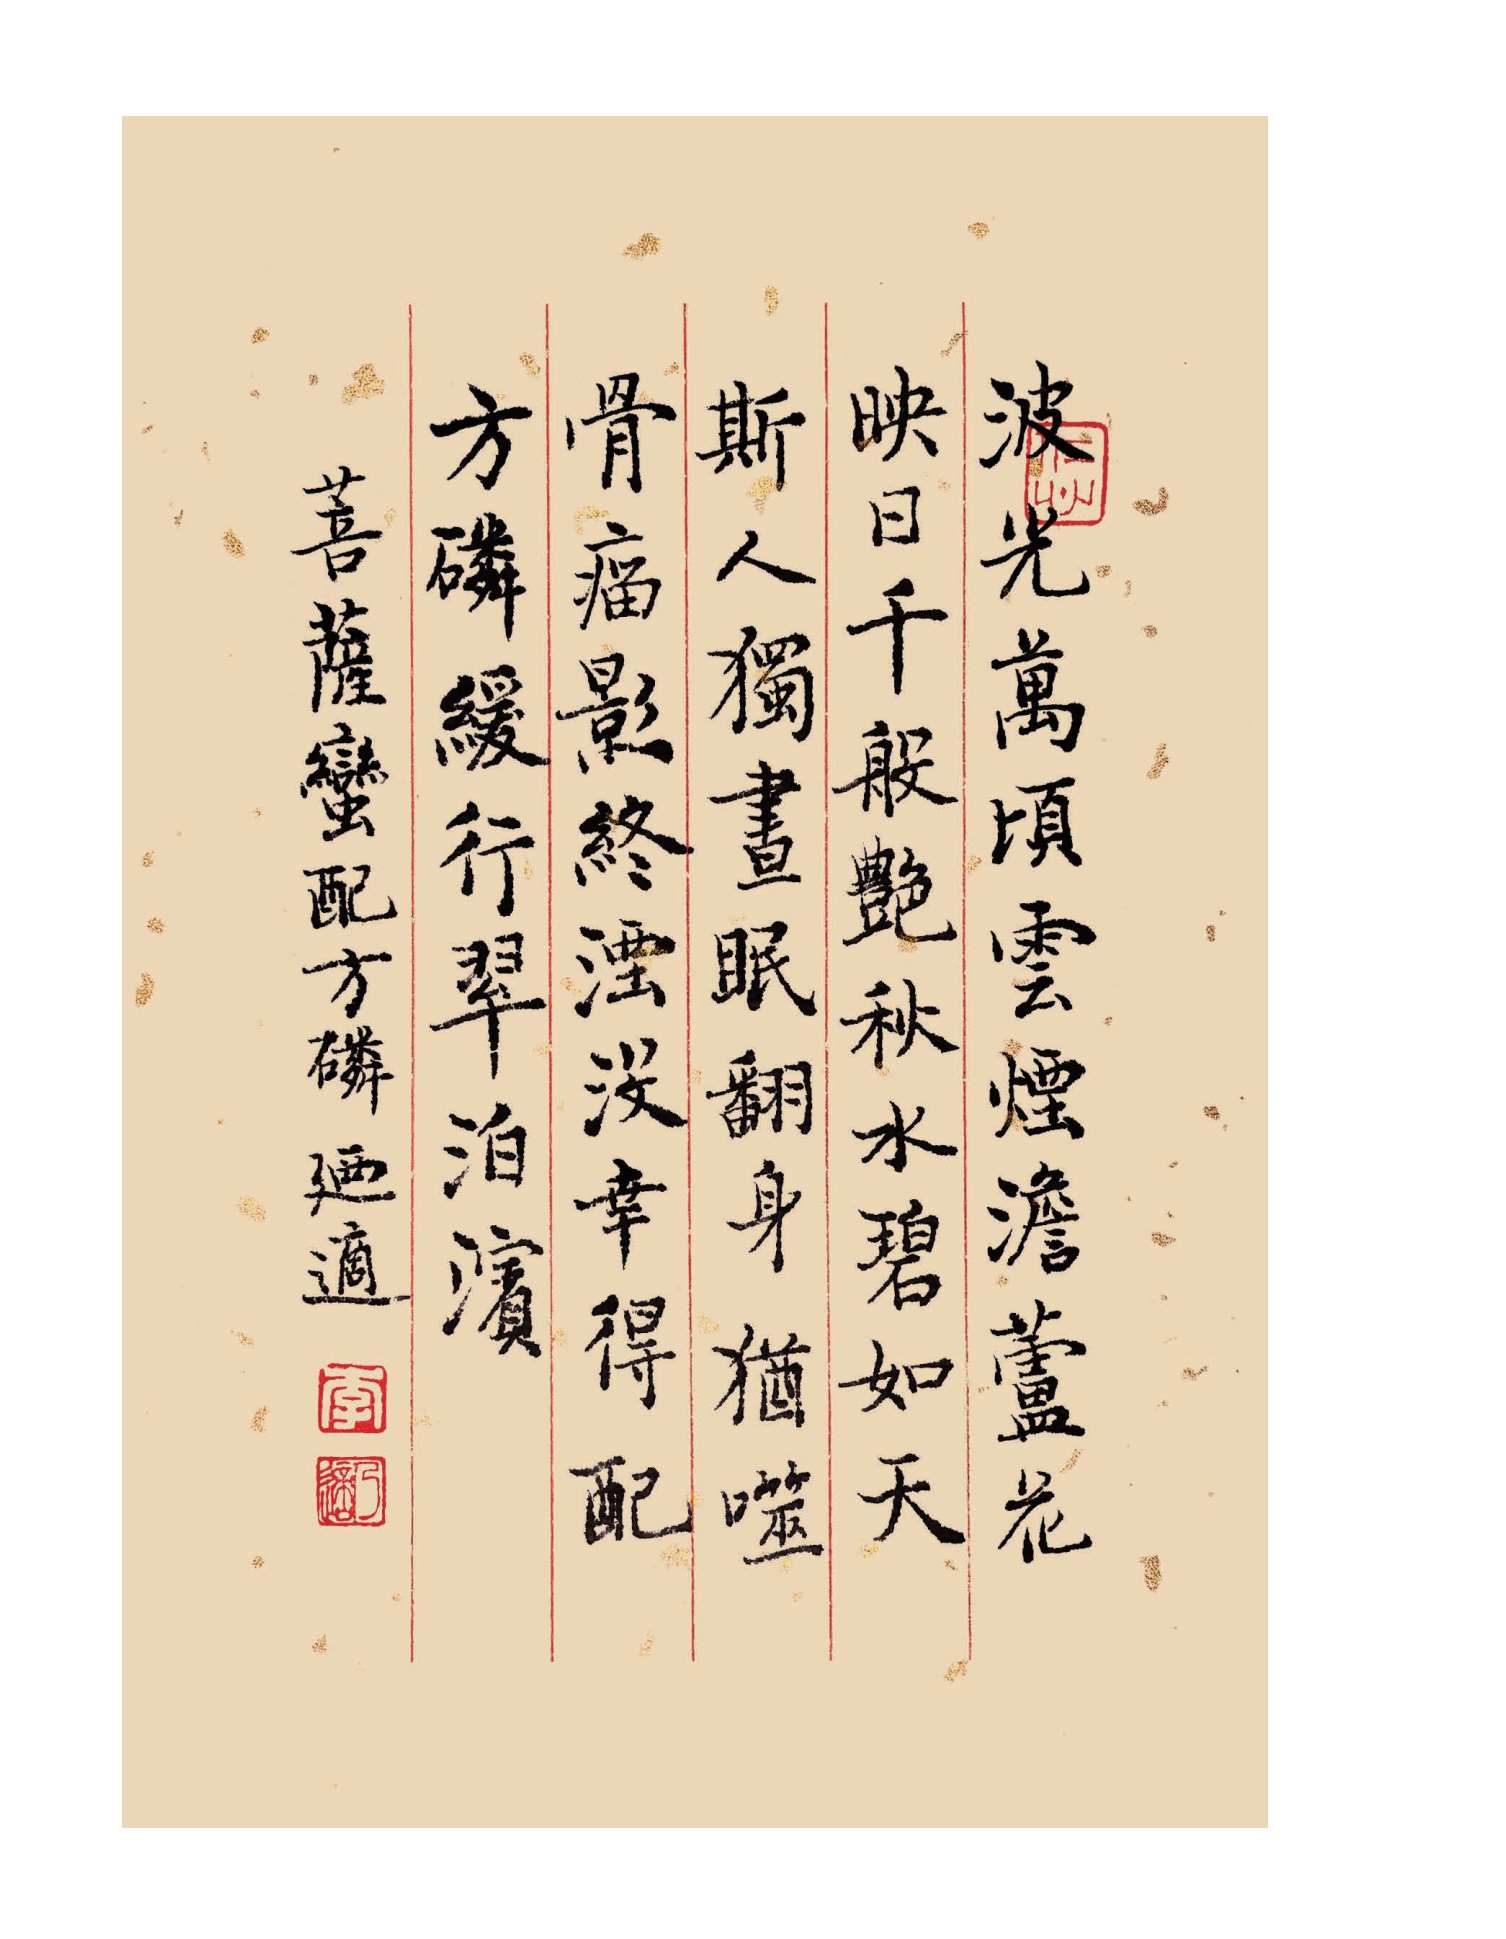 波光萬頃雲煙澹蘆花
映日千般艷秋水碧如天
斯人獨晝眠翻身猶噬
骨瘤影終湮没幸得配
方磷緩行翠泊濱
菩薩蠻配方磷 廼適